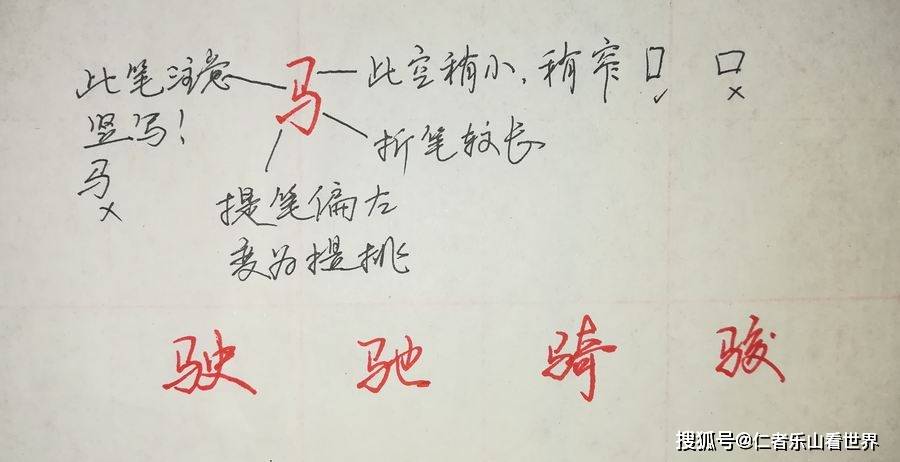 此笔注意
竖写！
马
×
马
此空稍小，稍窄
✓
×
折笔较长
提笔偏左
变为提挑
驶 驰 骑 骏
搜狐号@仁者乐山看世界